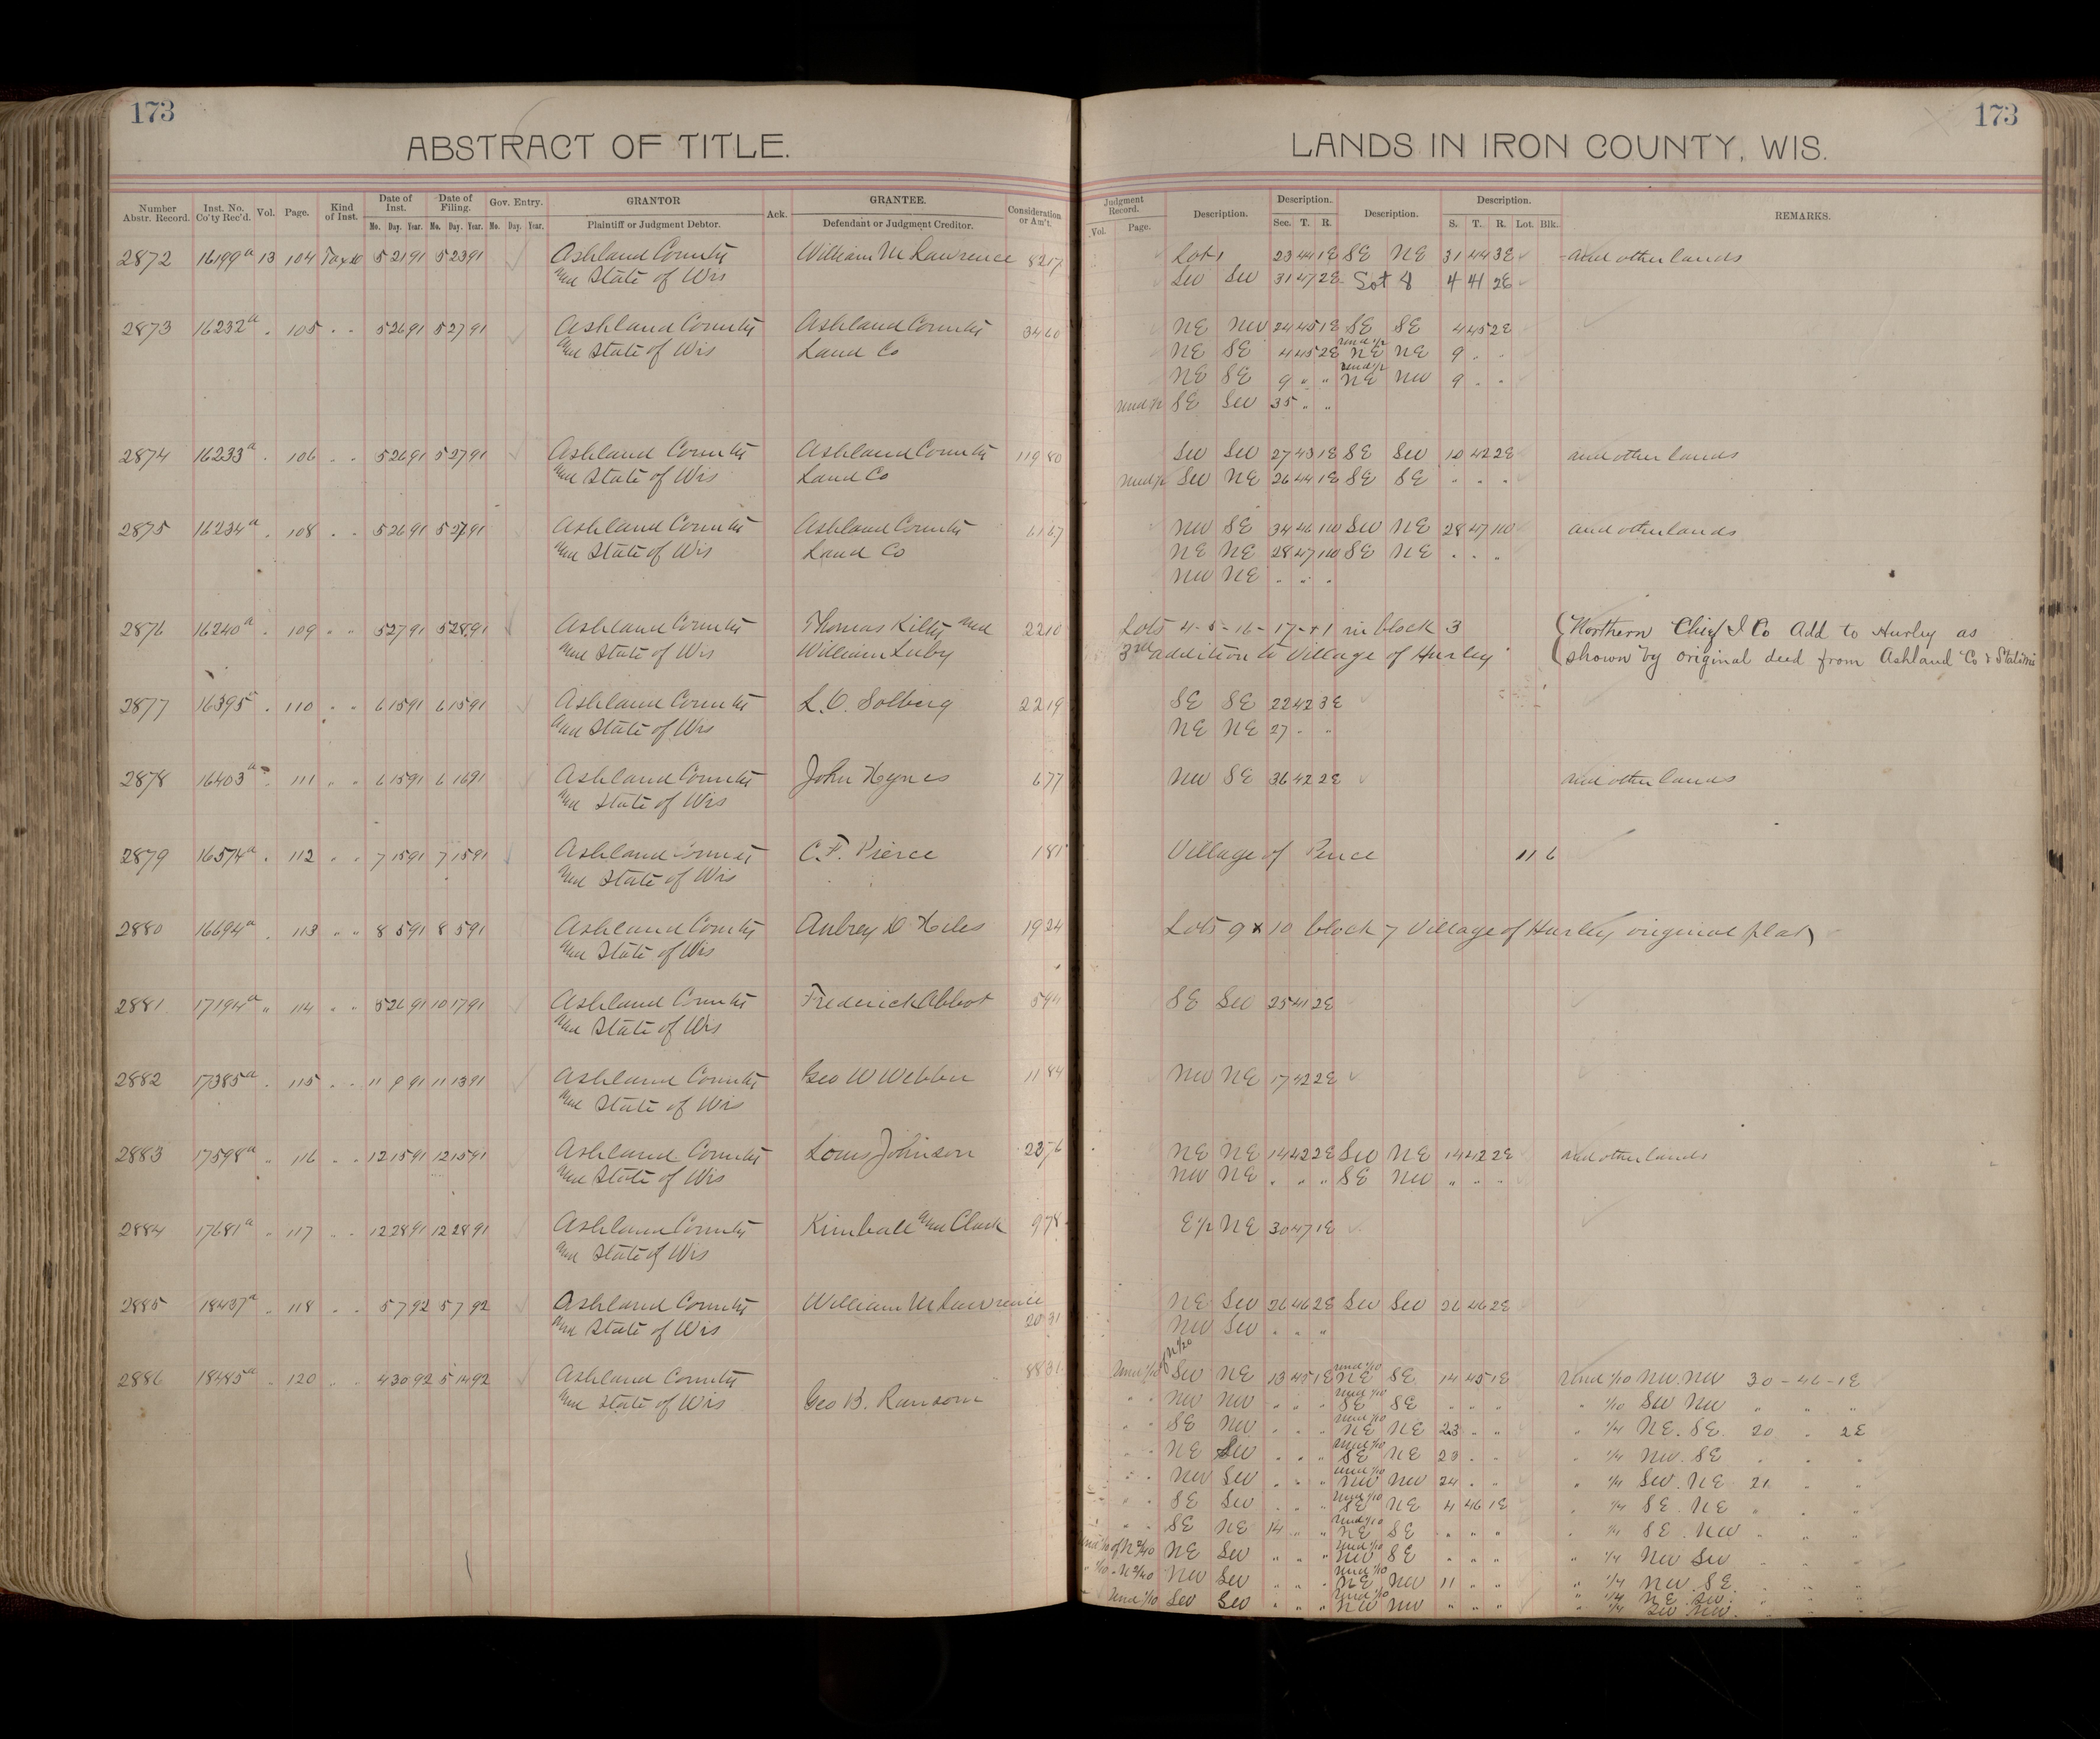 173
ABSTRACT OF TITLE.
Number Abstr. Record. Inst. No. Co'ty Rec'd. Vol. Page. Kind of Inst. Date of Inst. Date of Filing. Gov. Entry. GRANTOR Ack. GRANTEE. Consideration or Am't.
Mo. Day. Year. Mo. Day. Year. Mo. Day. Year. Plaintiff or Judgment Debtor. Defendant or Judgment Creditor.
2872 16199a 13 104 Tax 5 21 91 5 23 91 Ashland County William M Lawrence 82 17
and State of Wis
2873 16232a . 105 " " 5 26 91 5 27 91 Ashland County Ashland County 34 60
and State of Wis Land Co
2874 16233a . 106 " " 5 26 91 5 27 91 Ashland County Ashland County 119 80
and State of Wis Land Co
2875 16234a . 108 " " 5 26 91 5 27 91 Ashland County Ashland County 61 67
and State of Wis Land Co
2876 16240a . 109 " " 5 27 91 5 28 91 Ashland County Thomas Kilty and 22 10
and State of Wis William Luby
2877 16395a . 110 " " 6 15 91 6 15 91 Ashland County L. O. Solberg 22 19
and State of Wis
2878 16403a . 111 " " 6 15 91 6 16 91 Ashland County John Hynes 6 77
and State of Wis
2879 16574a . 112 " " 7 15 91 7 15 91 Ashland County C. F. Pierce 1 81
and State of Wis
2880 16694a . 113 " " 8 5 91 8 5 91 Ashland County Aubrey D Hiles 19 24
and State of Wis
2881 17194a " 114 " " 5 26 91 10 17 91 Ashland County Frederick Abbot 5 44
and State of Wis
2882 17385a . 115 " " 11 9 91 11 13 91 Ashland County Geo W Webber 11 84
and State of Wis
2883 17598a " 116 " " 12 15 91 12 15 91 Ashland County Louis Johnson 22 76
and State of Wis
2884 17681a " 117 " " 12 28 91 12 28 91 Ashland County Kimball and Clark 9 78
and State of Wis
2885 18437a " 118 " " 5 7 92 5 7 92 Ashland County William M Lawrence
and State of Wis 20 31
2886 18485a . 120 " " 4 30 92 5 14 92 Ashland County 88 31
and State of Wis Geo B. Ransom
173
LANDS IN IRON COUNTY, WIS.
Judgment Record. Description. Description. Description. Description. REMARKS.
Vol. Page. Sec. T. R. S. T. R. Lot. Blk.
Lot 1 23 44 1E SE NE 31 44 3E and other lands
SW SW 31 47 2E Lot 8 4 41 2E
NE NW 24 45 1E SE SE 4 45 2E
NE SE 4 45 2E und 1/2 NE NE 9 " "
NE SE 9 " " und 1/2 NE NW 9 " "
und 1/2 SE SW 35 " "
SW SW 27 43 1E SE SW 10 42 2E and other lands
und 1/2 SW NE 26 44 1E SE SE " " "
NW SE 34 46 1W SW NE 28 47 1W and other lands
NE NE 28 47 1W SE NE " " "
NW NE " " "
Lots 4-5-16-17-+1 in block 3 (Northern Chief I Co Add to Hurley as
3rd addition to Village of Hurley (shown by original deed from Ashland Co &
SE SE 22 42 3E
NE NE 27 " "
NW SE 36 42 2E and other lands
Village of Pence 11 6
Lots 9 x 10 block 7 Village of Hurley original plat
SE SW 25 41 2E
NW NE 17 42 2E
NE NE 14 42 2E SW NE 14 42 2E and other lands
NW NE " " " SE NW " " "
E 1/2 NE 30 47 1E
NE SW 26 46 2E SW SW 26 46 2E
NW SW " " "
und 1/10 SW NE 13 45 1E und 1/10 NE SE 14 45 1E und 1/10 NW. NW 30-46-1E
" " NW NW " " " und 1/10 SE SE " " " " 1/10 SW NW " " "
" " SE NW " " " und 1/10 NE NE 23 " " " 1/4 NE. SE. 20 " 2E
" " NE SW " " " und 1/10 SE NE 23 " " " 1/4 NW. SE " " "
" " NW SW " " " und 1/10 NW NW 24 " " " 1/4 SW. NE 21 " "
" " SE SW " " " und 1/10 SE NE 4 46 1E " 1/4 SE. NE " " "
" " SE NE 14 " " und 1/10 NE SE " " " " 1/4 SE. NW " " "
NE SW " " " und 1/10 NW SE " " " " 1/4 NW SW " " "
NW SW " " " und 1/10 NE NW 11 " " " 1/4 NW. SE. " " "
und 1/10 SW SW " " " und 1/10 NW NW " " " " 1/4 NE. SW. " " "
" 1/4 SW NW. " " "